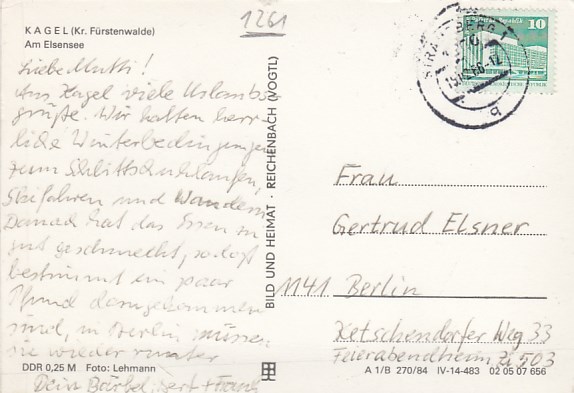 1261
KAGEL (Kr. Fürstenwalde)
Am Elsensee
Liebe Mutti!
Aus Kagel viele Urlaubs-
grüße. Wir hatten herr-
liche Winterbedingungen
zum Schlittschuhlaufen,
Skifahren und Wandern.
Danach hat das Essen so
gut geschmeckt, so daß
bestimmt ein paar
Pfund dazugekommen
sind, in Berlin müssen
sie wieder runter
Dein Bärbel, Gert + Frank
DDR 0,25 M Foto: Lehmann
BILD UND HEIMAT · REICHENBACH (VOGTL)
STRAUSBERG 1
10
Frau
Gertrud Elsner
1141 Berlin
Ketschendorfer Weg 33
Feierabendheim Zi 503
A 1/B 270/84 IV-14-483 02 05 07 656